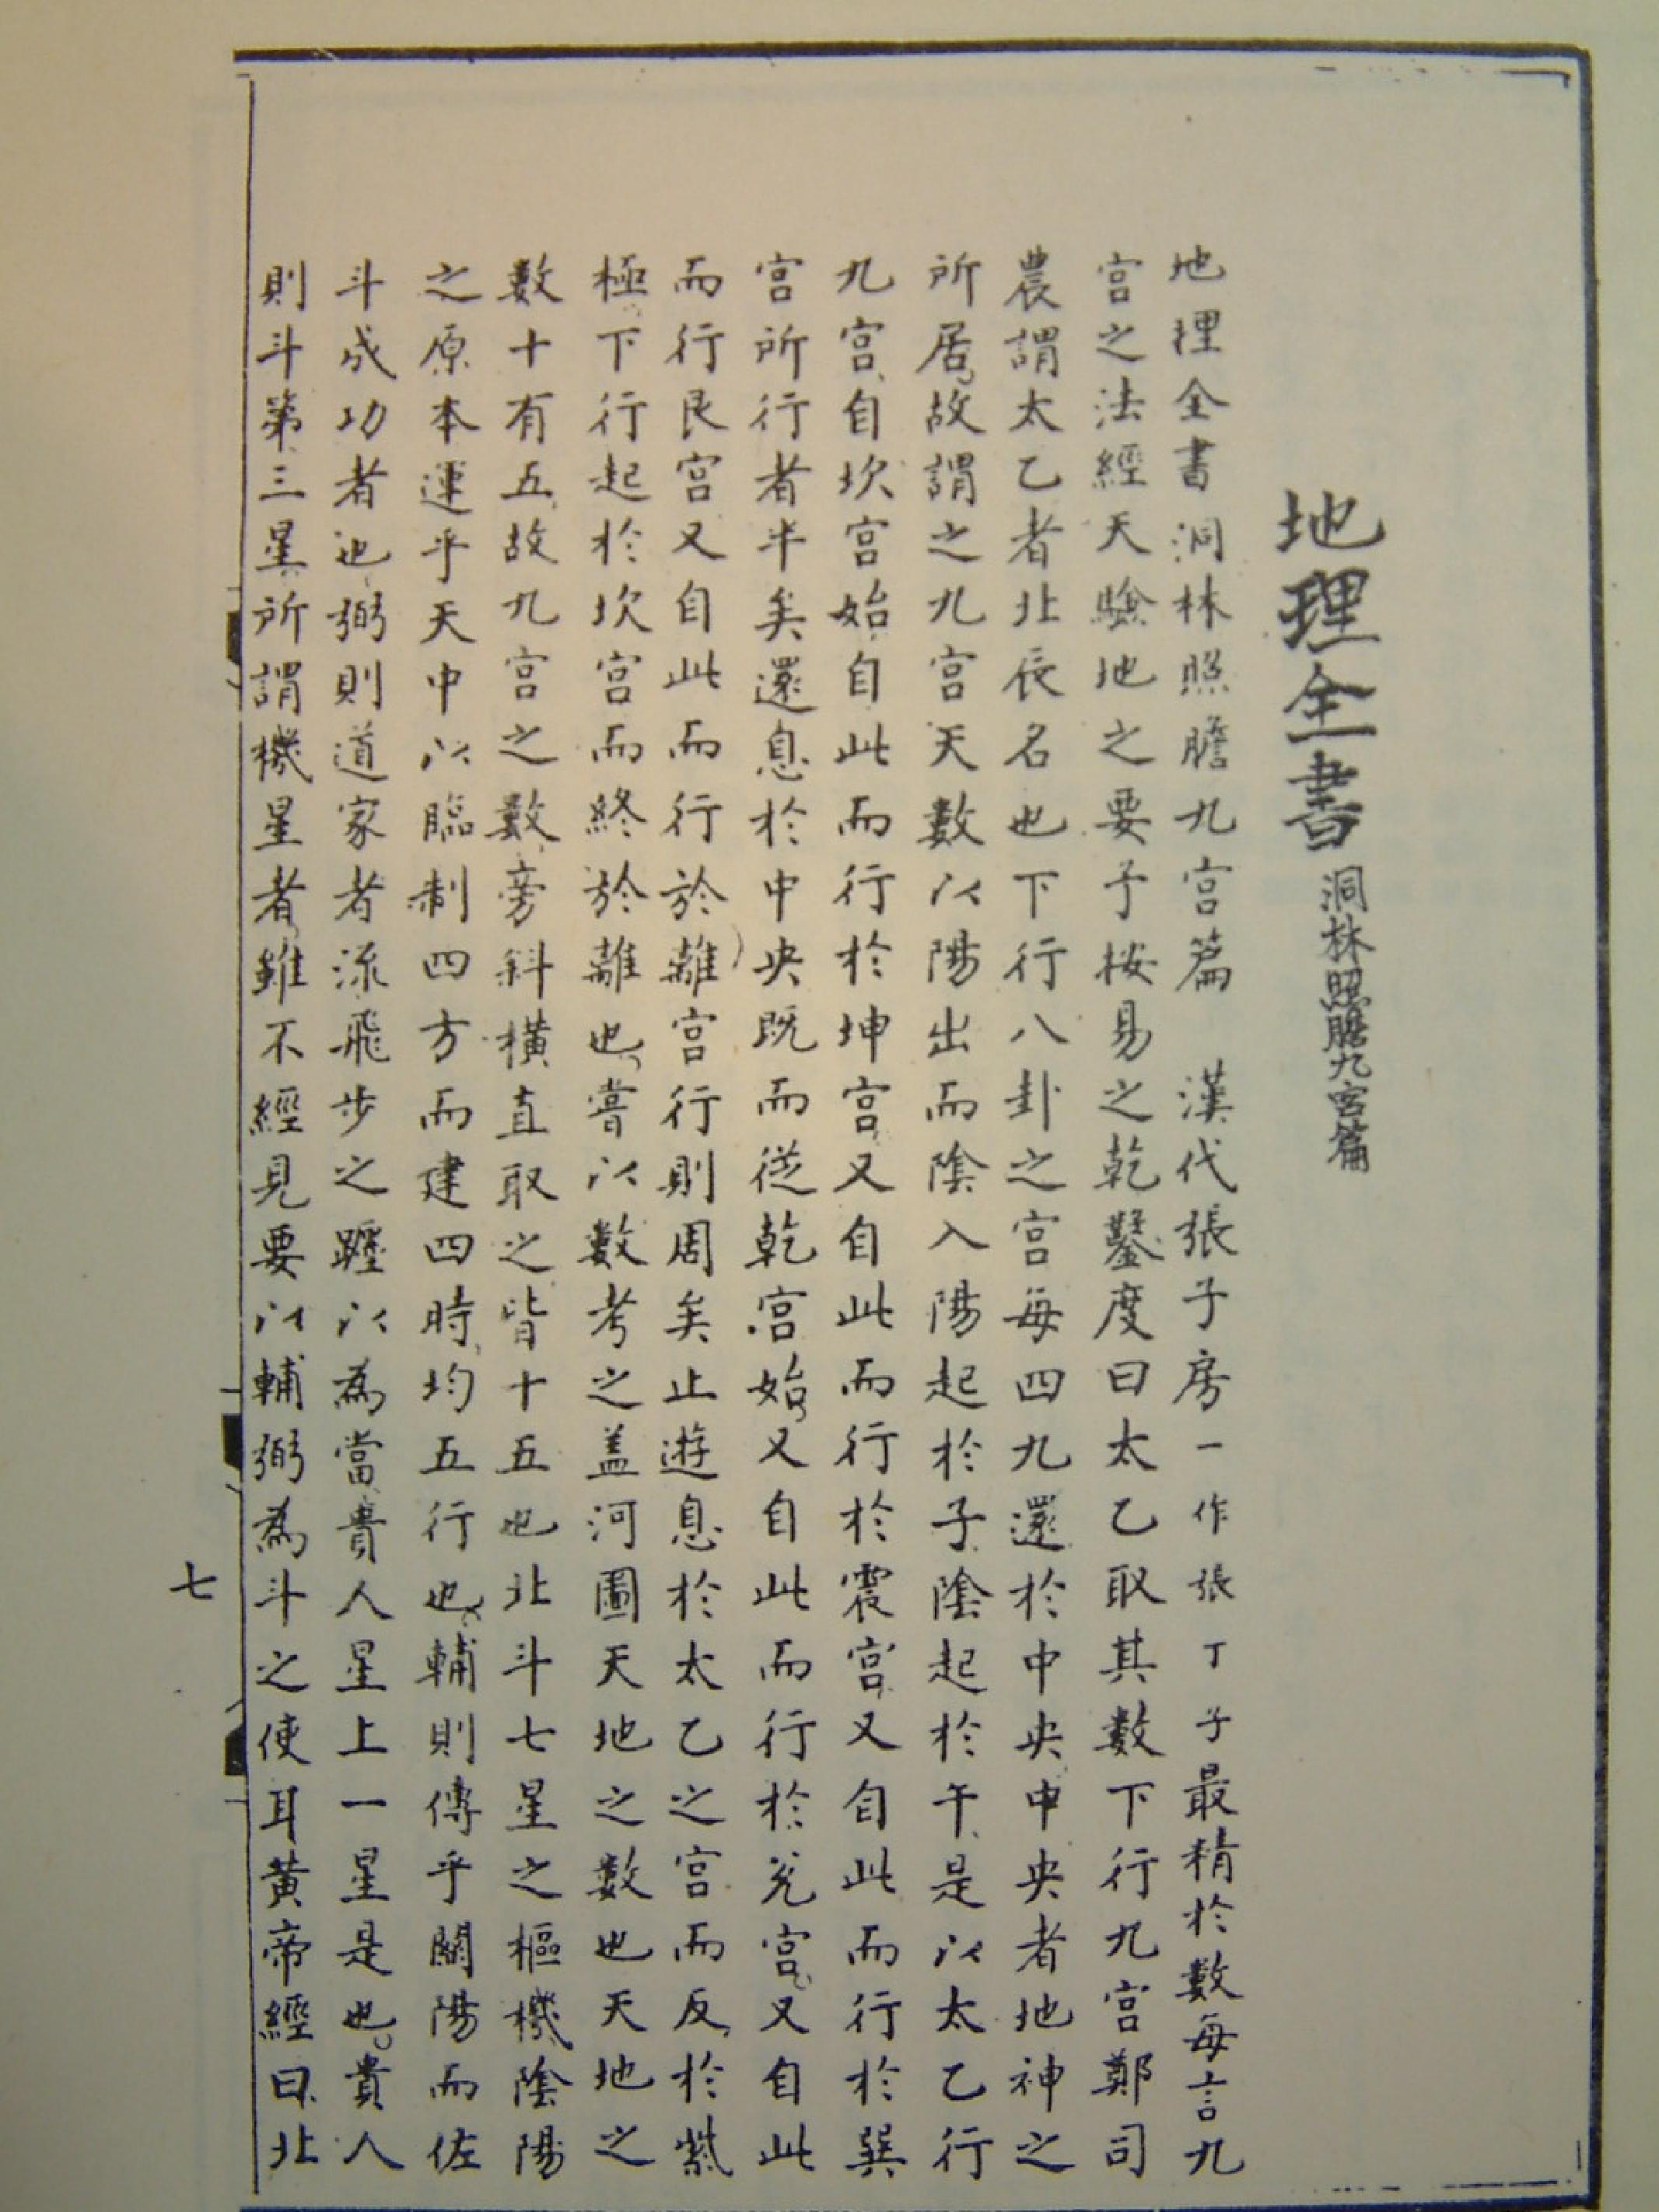 地理全書 洞林照膽九宮篇
地理全書洞林照膽九宮篇　漢代張子房一作張丁子最精於數每言九
宮之法經天驗地之要子按易之乾鑿度曰太乙取其數下行九宮鄭司
農謂太乙者北辰名也下行八卦之宮每四九還於中央中央者地神之
所居故謂之九宮天數以陽出而陰入陽起於子陰起於午是以太乙行
九宮自坎宮始自此而行於坤宮又自此而行於震宮又自此而行於巽
宮所行者半矣還息於中央既而從乾宮始又自此而行於兌宮又自此
而行艮宮又自此而行於離宮行則周矣止遊息於太乙之宮而反於紫
極下行起於坎宮而終於離也嘗以數考之盖河圖天地之數也天地之
數十有五故九宮之數旁斜橫直取之皆十五也北斗七星之樞機陰陽
之原本運乎天中以臨制四方而建四時均五行也輔則傳乎關陽而佐
斗成功者也弼則道家者流飛步之躔以為當貴人星上一星是也貴人
則斗第三星所謂機星者雖不經見要以輔弼為斗之使耳黃帝經曰北
七